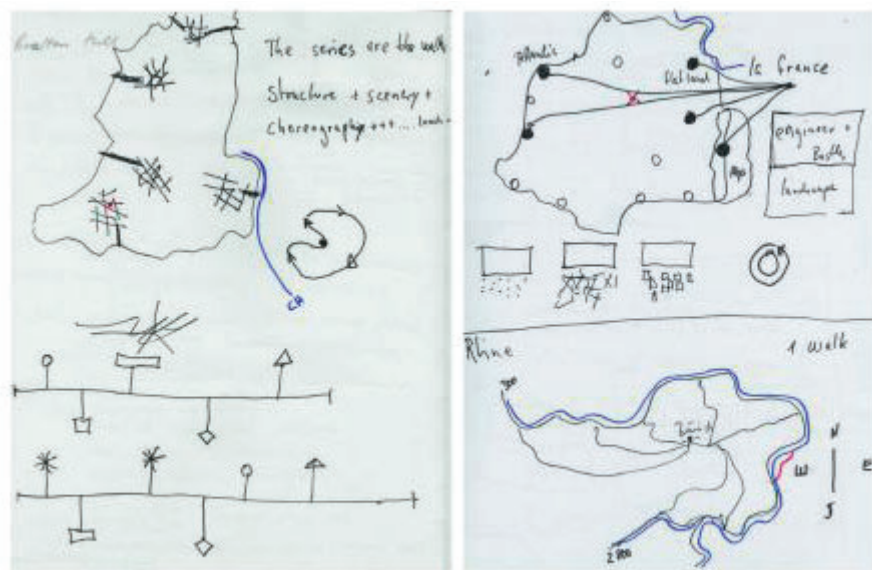 The series are the walk
Structure + scenery +
Choreography +++ ....
CH
Atlantic
la France
Oakland
engineer +
Alps
landscape
X1
Rhine
1 Walk
300
Zürich
N
W
E
S
2800